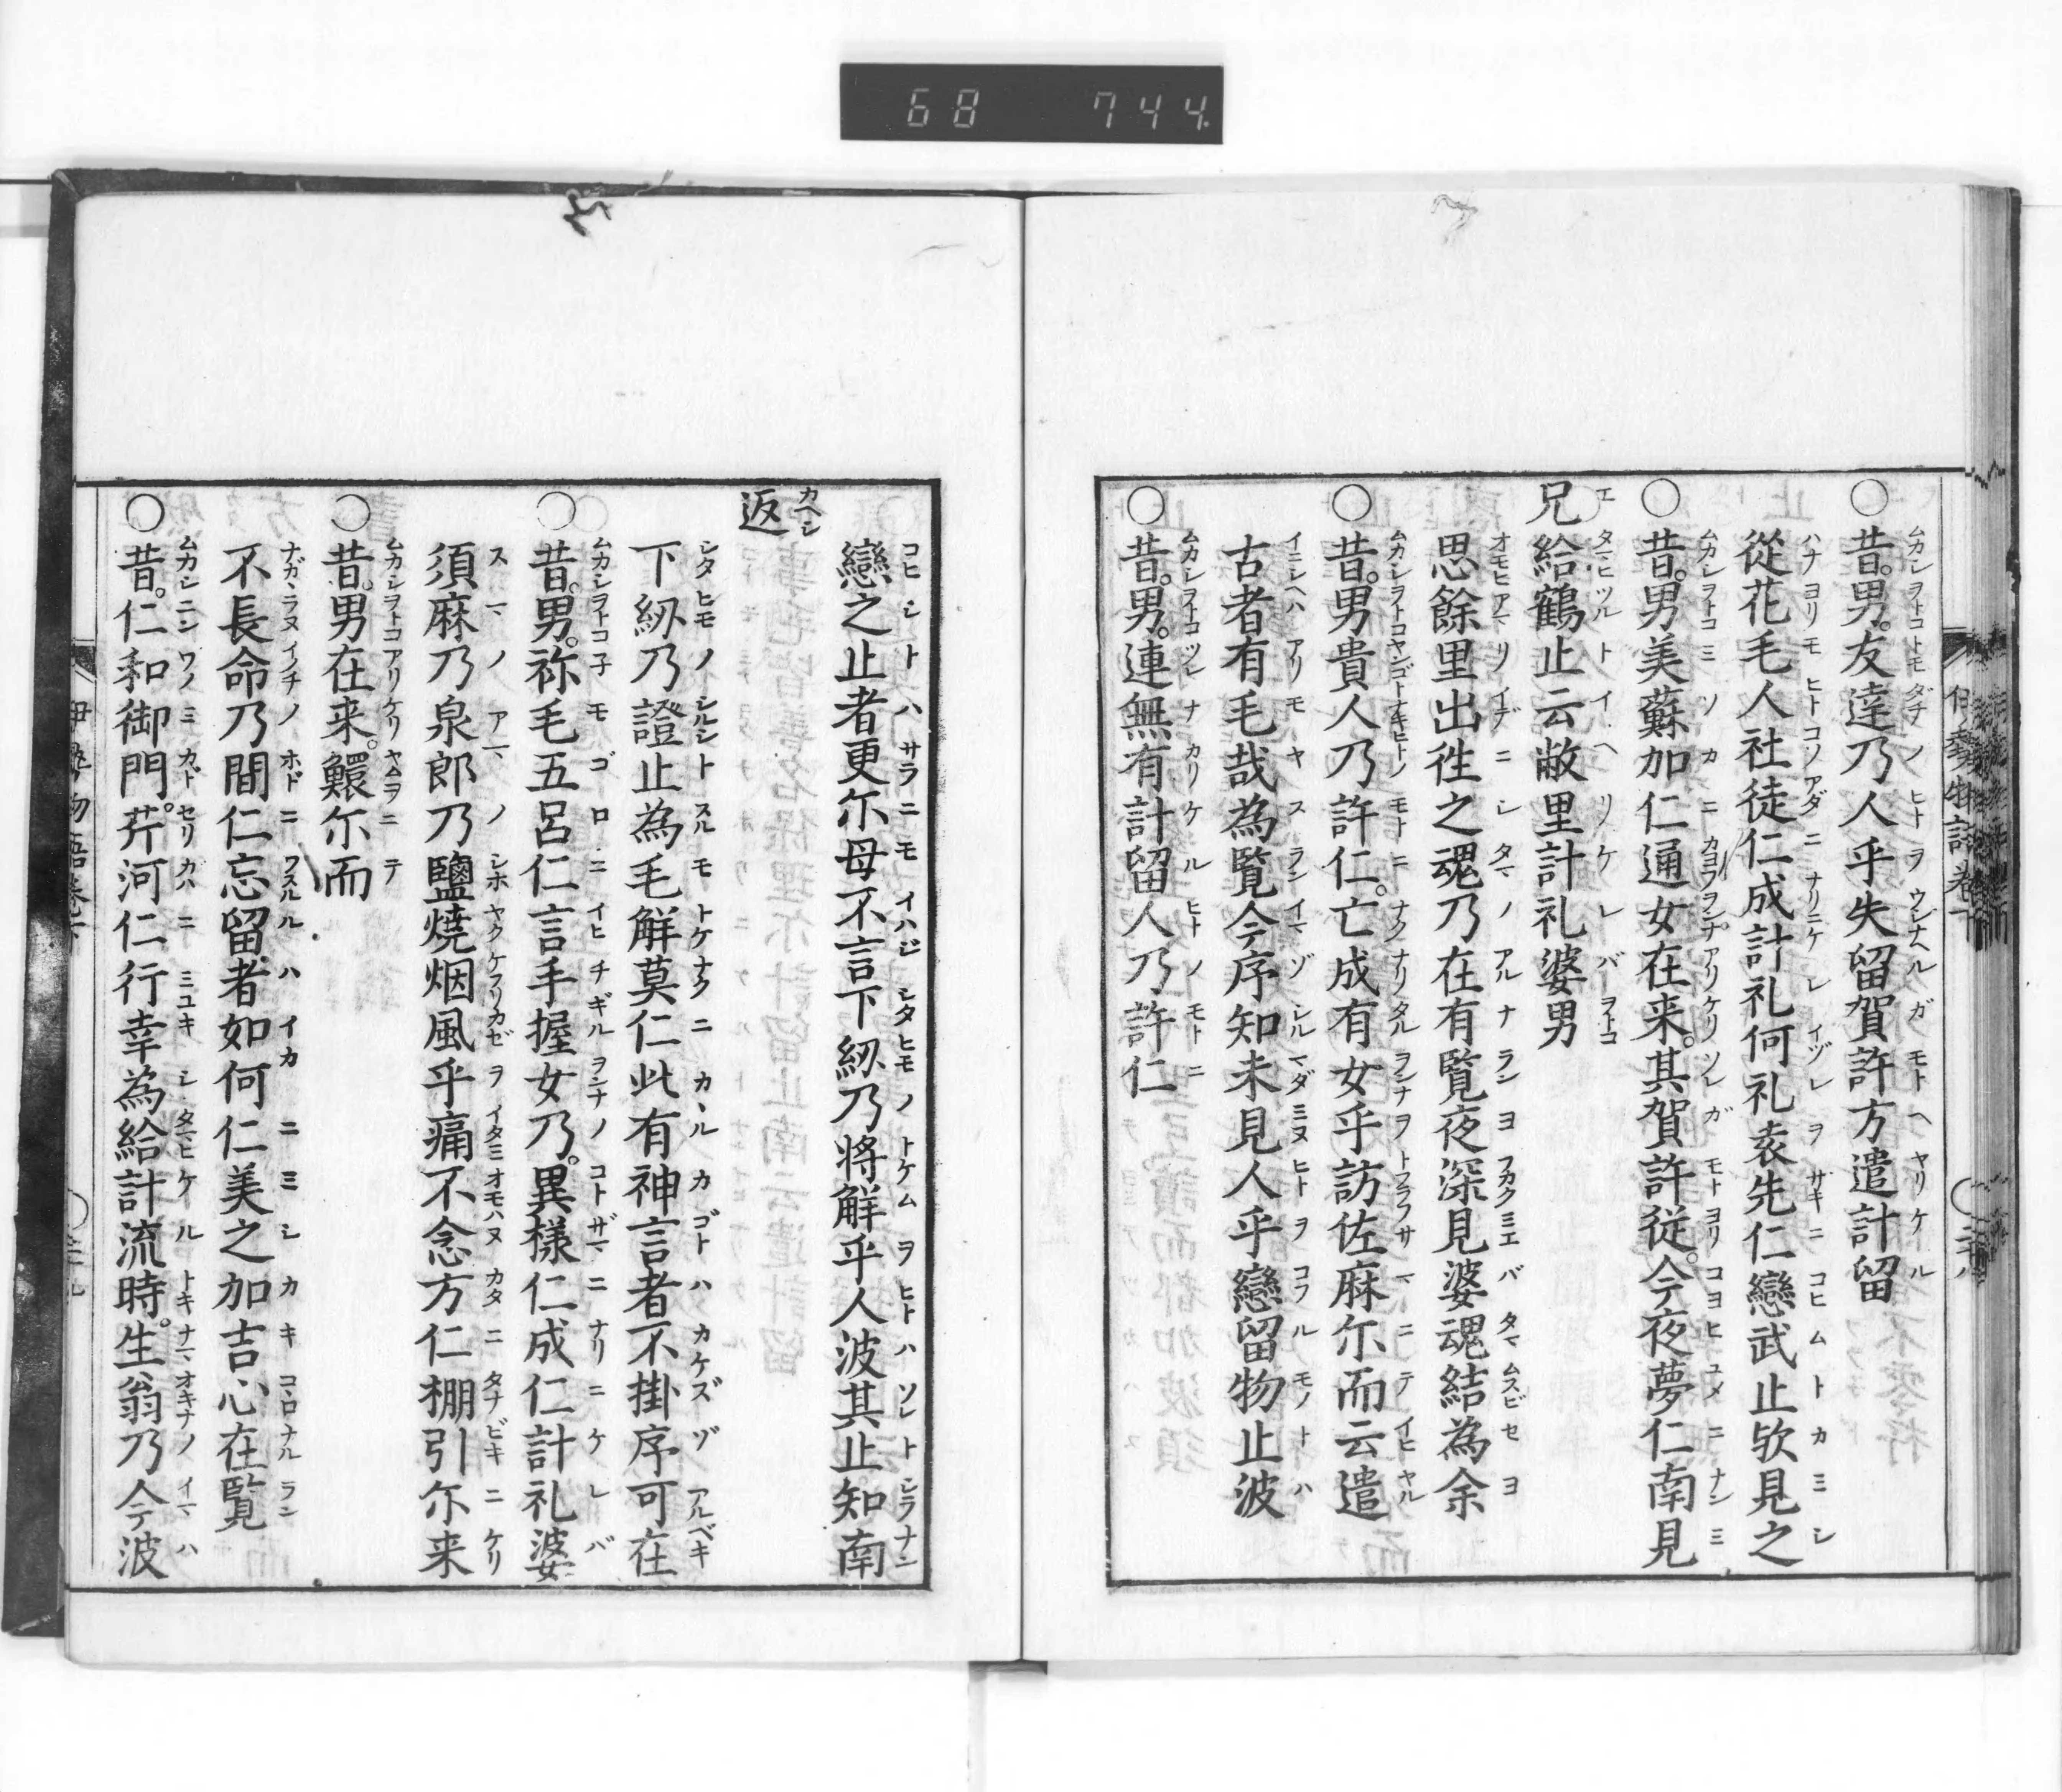 68 744.
○昔。男。友達乃人乎失留賀許方遣計留
從花毛人社徒仁成計礼何礼袁先仁戀武止欤見之
○昔。男美蘇加仁通女在来。其賀許従。今夜夢仁南見
兄給鶴止云敝里計礼婆男
思餘里出徃之魂乃在有覧夜深見婆魂結為余
○昔。男貴人乃許仁。亡成有女乎訪佐麻尓而云遣
古者有毛哉為覧今序知未見人乎戀留物止波
○昔。男。連無有計留人乃許仁
戀之止者更尓母不言下紐乃将解乎人波其止知南
返
下紐乃證止為毛解莫仁此有神言者不掛序可在
○昔。男。祢毛五呂仁言手握女乃。異様仁成仁計礼婆
須麻乃泉郎乃鹽焼烟風乎痛不念方仁棚引尓来
○昔。男在来。鰥尓而
不長命乃間仁忘留者如何仁美之加吉心在覧
○昔。仁和御門。芹河仁行幸為給計流時。生翁乃今波